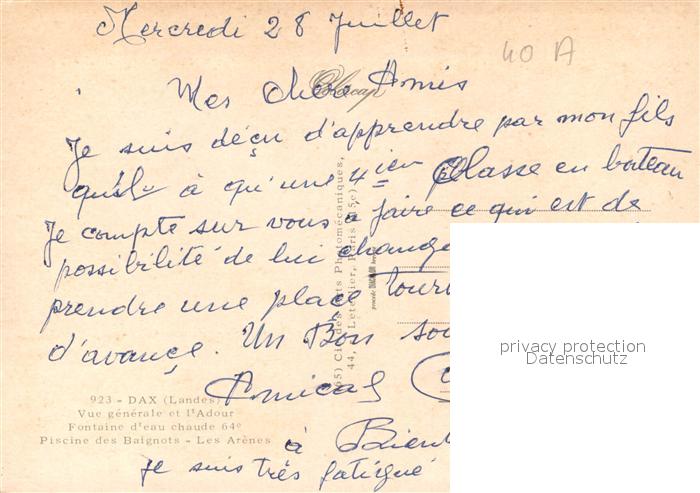 Mercredi 28 Juillet
40 A
Mes Chers Amis
Je suis déçu d'apprendre par mon fils
qu'il à qu'une 4ieu Classe en bateau
Je compte sur vous a faire ce qui est de
possibilité de lui change
prendre une place Tour
d'avançe. Un Bon sou
Amical
à Bient
je suis très fatigué
923 - DAX (Landes)
Vue générale et l'Adour
Fontaine d'eau chaude 64º
Piscine des Baignots - Les Arènes
privacy protection
Datenschutz